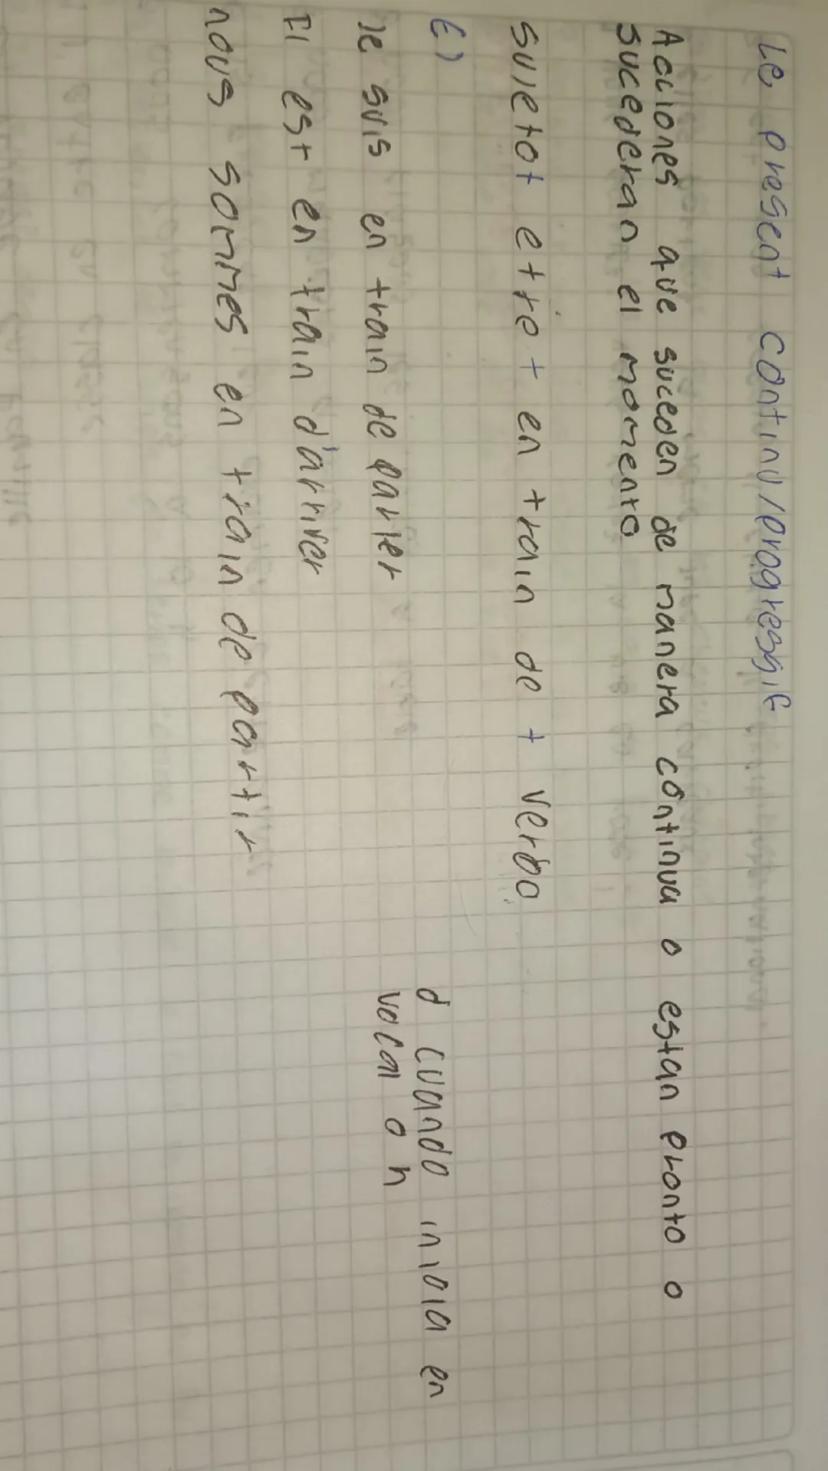 Le present continu/progressif
Acciones que suceden de manera continua o estan pronto o
sucederan el momento
sujetot etre + en train de + verbo
Ej
Je suis en train de parler
Il est en train d'arriver
nous sommes en train de partir
d cuando inicia en
vocal o h